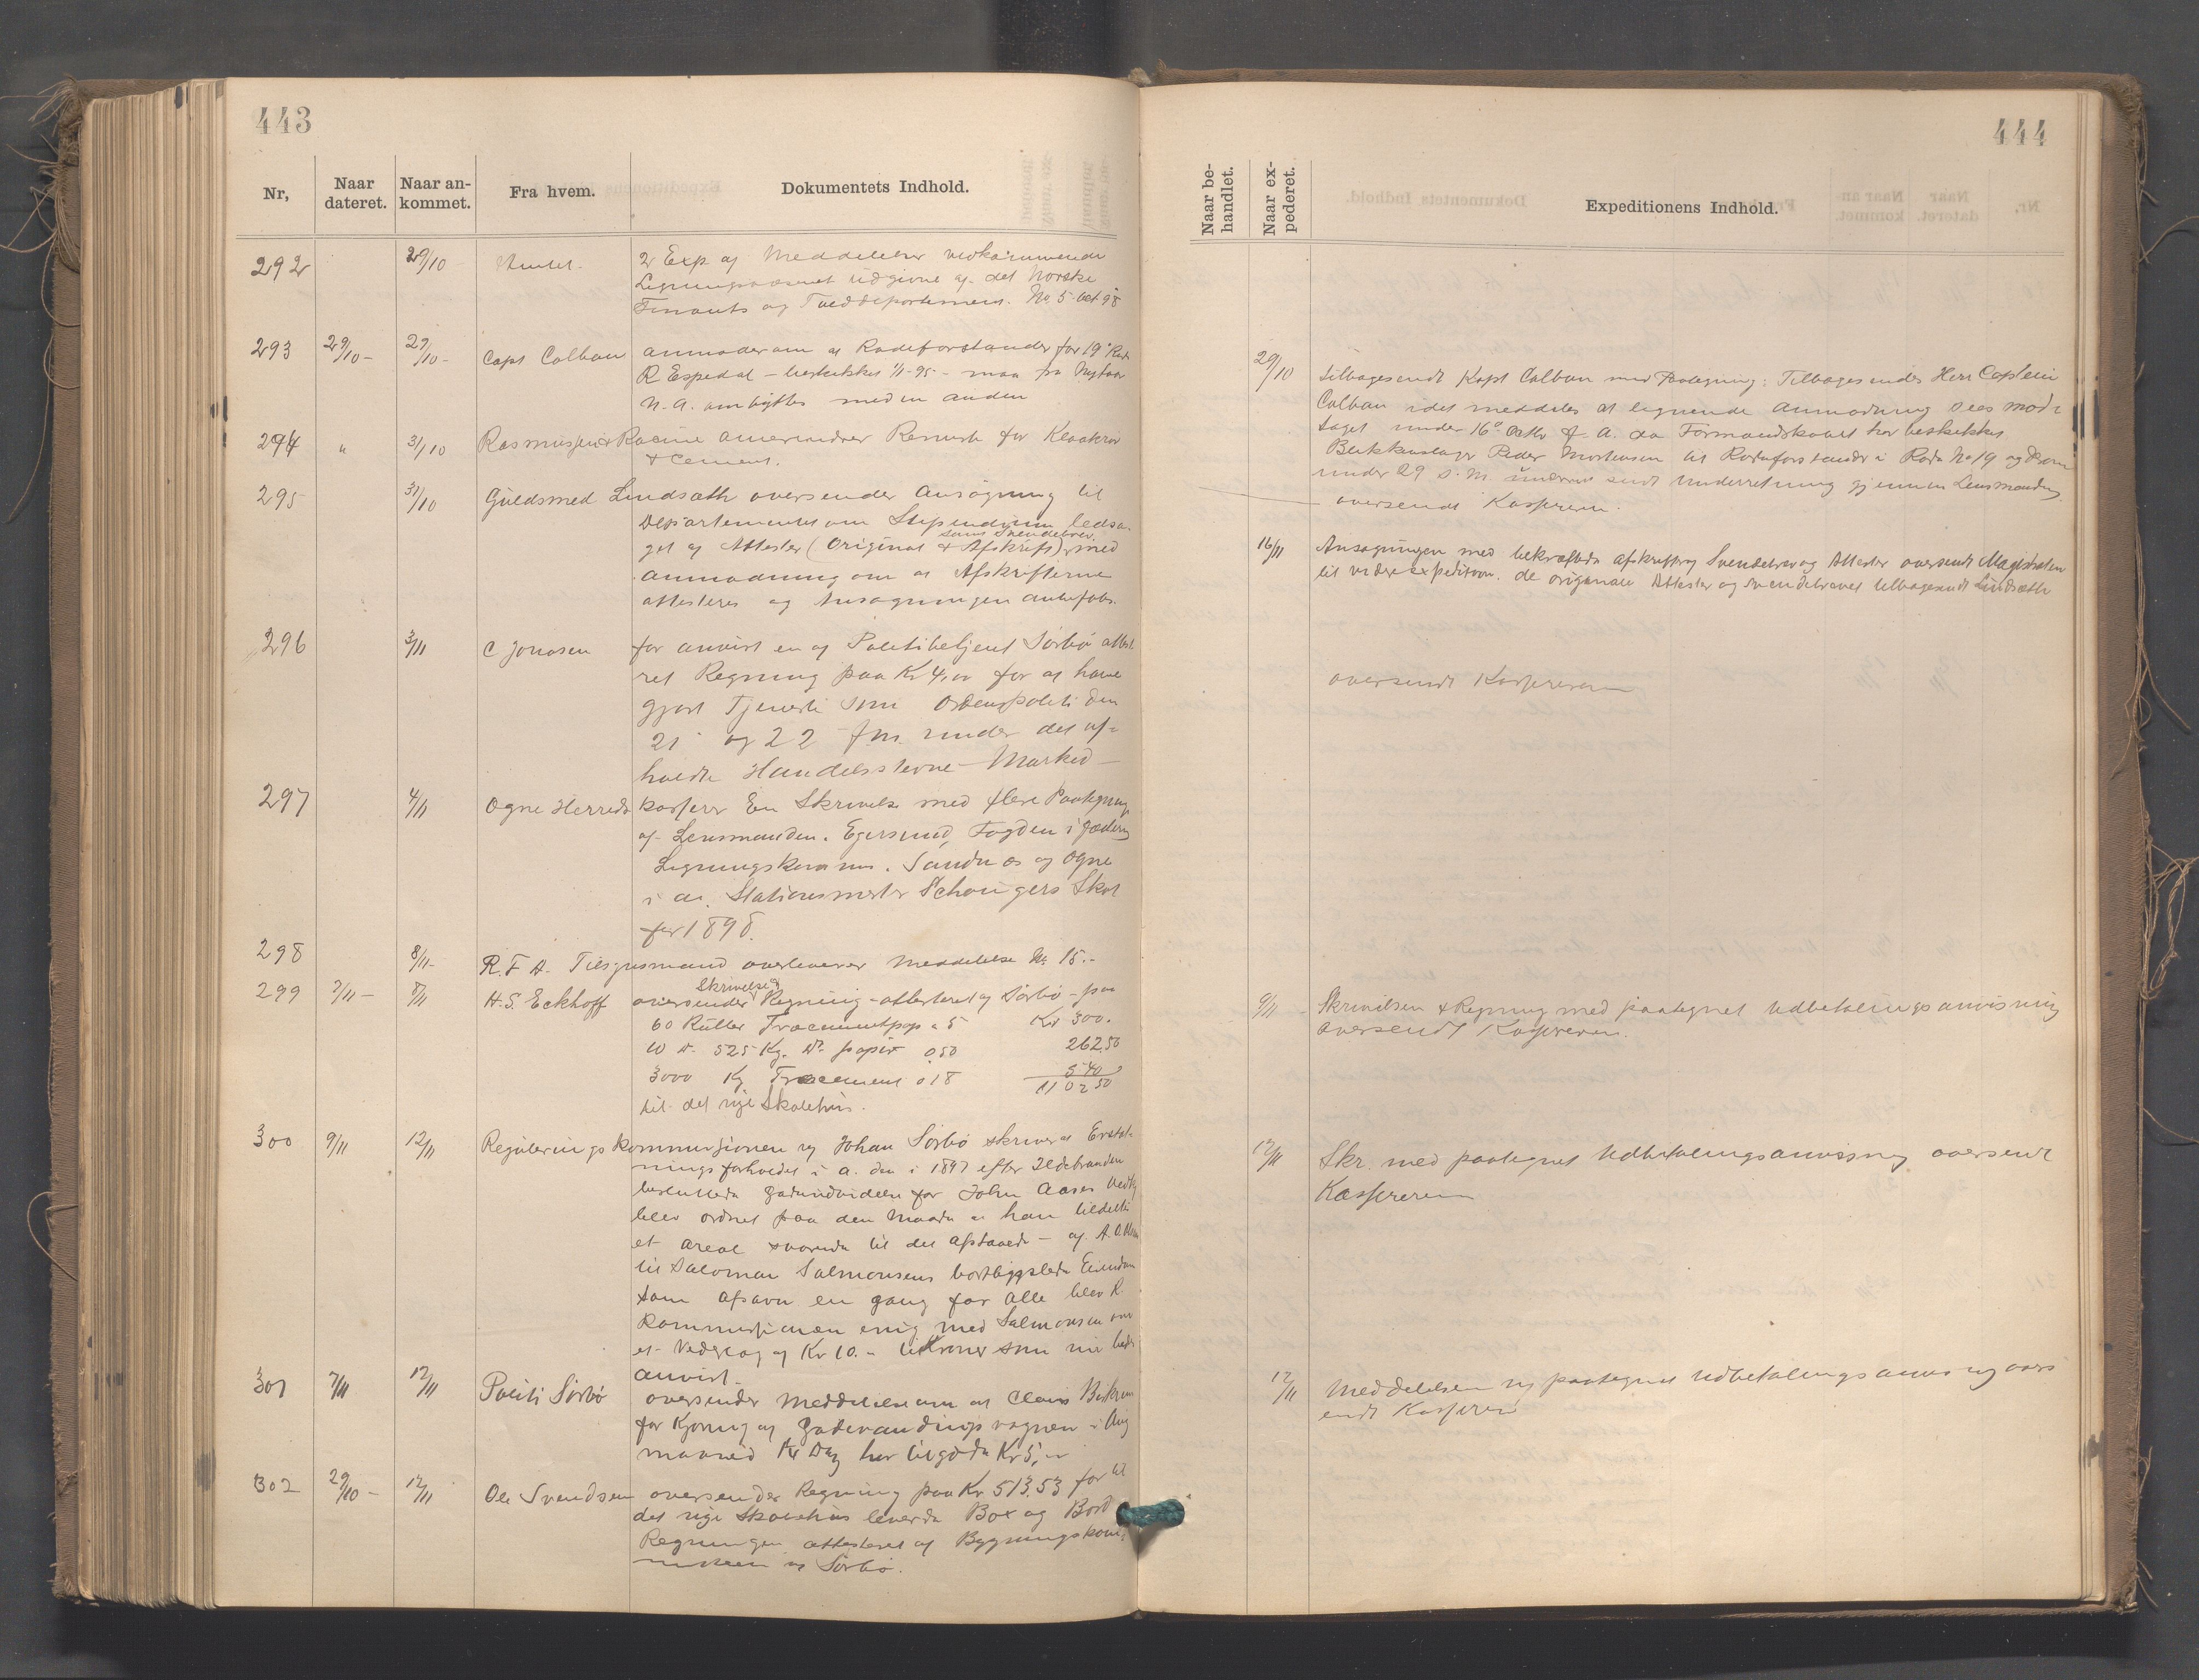 443
Nr,
Naar dateret.
Naar ankommet.
Fra hvem.
Dokumentets Indhold.
292 29/10 Amtet. 2 Exp af Meddelelser vedkommende
Ligningsvæsenet udgivne af det Norske
Finants og Tolddepartement. No 5 Oct 98
293 29/10 29/10 Capt Colban anmoder om at Rodeforstander for 19de Rode
R Espedal – beskikket 1/1-95 – maa fra Nytaar
N. A. ombyttes med en anden
294 " 31/10 Rasmussen & Racine Remisse for Kloakrør
& Cement.
295 31/10 Guldsmed Lindsæth oversender Ansøgning til
Departementet om Stipendium ledsa-
get af Attester (Original & Afskrift) samt Svendebrev, med
Anmodning om at Afskrifterne
attesteres og Ansøgningen anbefales.
296 3/11 C Jonasen for anvist en af Politibetjent Sørbø attest
ret Regning paa Kr 4,00 for at have
gjort Tjeneste som Ordenspoliti den
21 og 22 f.m. under det af-
holdte Handelsstevne – Marked –
297 4/11 Ogne Herreds kasserer En Skrivelse med flere Paategninger
af Lensmanden i Egersund, Fogden i Jæderen
Ligningskomm. Sandnæs og Ogne
i a. Stationsmester Schangers Skat
for 1898.
298 8/11 R. F. H. Tilsynsmand overleverer Meddelelse No 15.-
299 7/11 8/11 H. S. Eckhoff oversender Skrivelse & Regning – attesteret af Sørbø – paa
60 Ruller Træcementpap a 5 Kr 300.
10 do 525 Kg. do papir 0.50 262.50
3000 Kg Træcement 0.18 540
1102.50
til det nye Skolehus.
300 9/11 12/11 Reguleringskommissionen og Johan Sørbø skriver at Erstat-
ningsforholdet i a. den i 1897 efter Ildebranden
besluttede Gadeudvidelse for John Aases Vedk
blev ordnet paa den Maade at han tildeltes
et Areal svarende til det afstaaede – af A. O.
til Salomon Salmonsens bortbyggslede Eiendom
som Afsavn en gang for alle blev R.
Kommissionen enig med Salmonsen om
et Vederlag af Kr 10.– ti Kroner som nu bedes
anvist.
301 7/11 12/11 Politi Sørbø oversender Meddelelse om at Claus Birkrem
for Kjøring af Gadevandingsvognen i Aug
maaned Dag har tilgode Kr 5,–
302 29/10 12/11 Ole Svendsen oversender Regning paa Kr 513.53 for til
det nye Skolehus leverede Box og Bord
Regningen attesteret af Bygningskom-
missionen og Sørbø.
444
Naar behandlet.
Naar expederet.
Expeditionens Indhold.
29/10 Tilbagesendt Kapt Colban med Paategning: Tilbagesendes Herr Captein
Colban idet meddeles at lignende Anmodning sees mod-
taget under 16de Octbr d. A. da Formandskabet har beskikket
Blikkenslager Peder Mortensen til Rodeforstander i Rode No 19 og ham
under 29 s. M. sendt Underretning gjennem Lensmanden
oversendt Kassereren.
16/11 Ansøgningen med bekræftede Afskrift af Svendebrev og Attester oversendt Magistraten
til videre Expedition. de originale Attester og Svendebrevet tilbagesendt Lindsæth
oversendt Kassereren
9/11 Skrivelsen & Regning med paategnet Udbetalingsanvisning
oversendt Kassereren.
12/11 Skr. med paategnet Udbetalingsanvisning oversendt
Kassereren
12/11 Meddelelsen og paategnet Udbetalingsanvisning overs
endt Kassereren